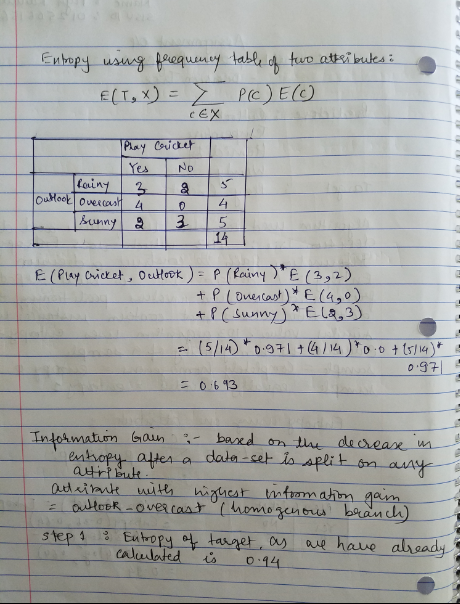 Entropy using frequency table of two attributes:
E(T, X) = Σ P(c) E(c)
c∈X
Play Cricket
Yes No
Rainy 3 2 5
Outlook Overcast 4 0 4
Sunny 2 3 5
14
E (Play Cricket, Outlook) = P (Rainy)* E (3,2)
+ P (Overcast)* E (4,0)
+ P (Sunny) * E (2,3)
= (5/14)* 0.971 + (4/14)* 0.0 + (5/14)*
0.971
= 0.693
Information Gain :- based on the decrease in
entropy after a data-set is split on any
attribute.
attribute with highest information gain
= outlook-overcast (homogenous branch)
Step 1 : Entropy of target, as we have already
calculated is 0.94